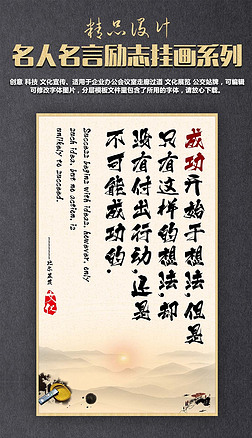 精品设计
名人名言励志挂画系列
创意 科技 文化宣传、适用于企业办公会议室走廊过道 文化展览 公交站牌，可编辑
可修改字体图片，分层模板文件里包含了所用的字体，请放心下载。
成功开始于想法,但是
只有这样的想法,却
没有付出行动,还是
不可能成功的.
Success begins with ideas, however, only
such idea, but no action, is
unlikely to succeed.